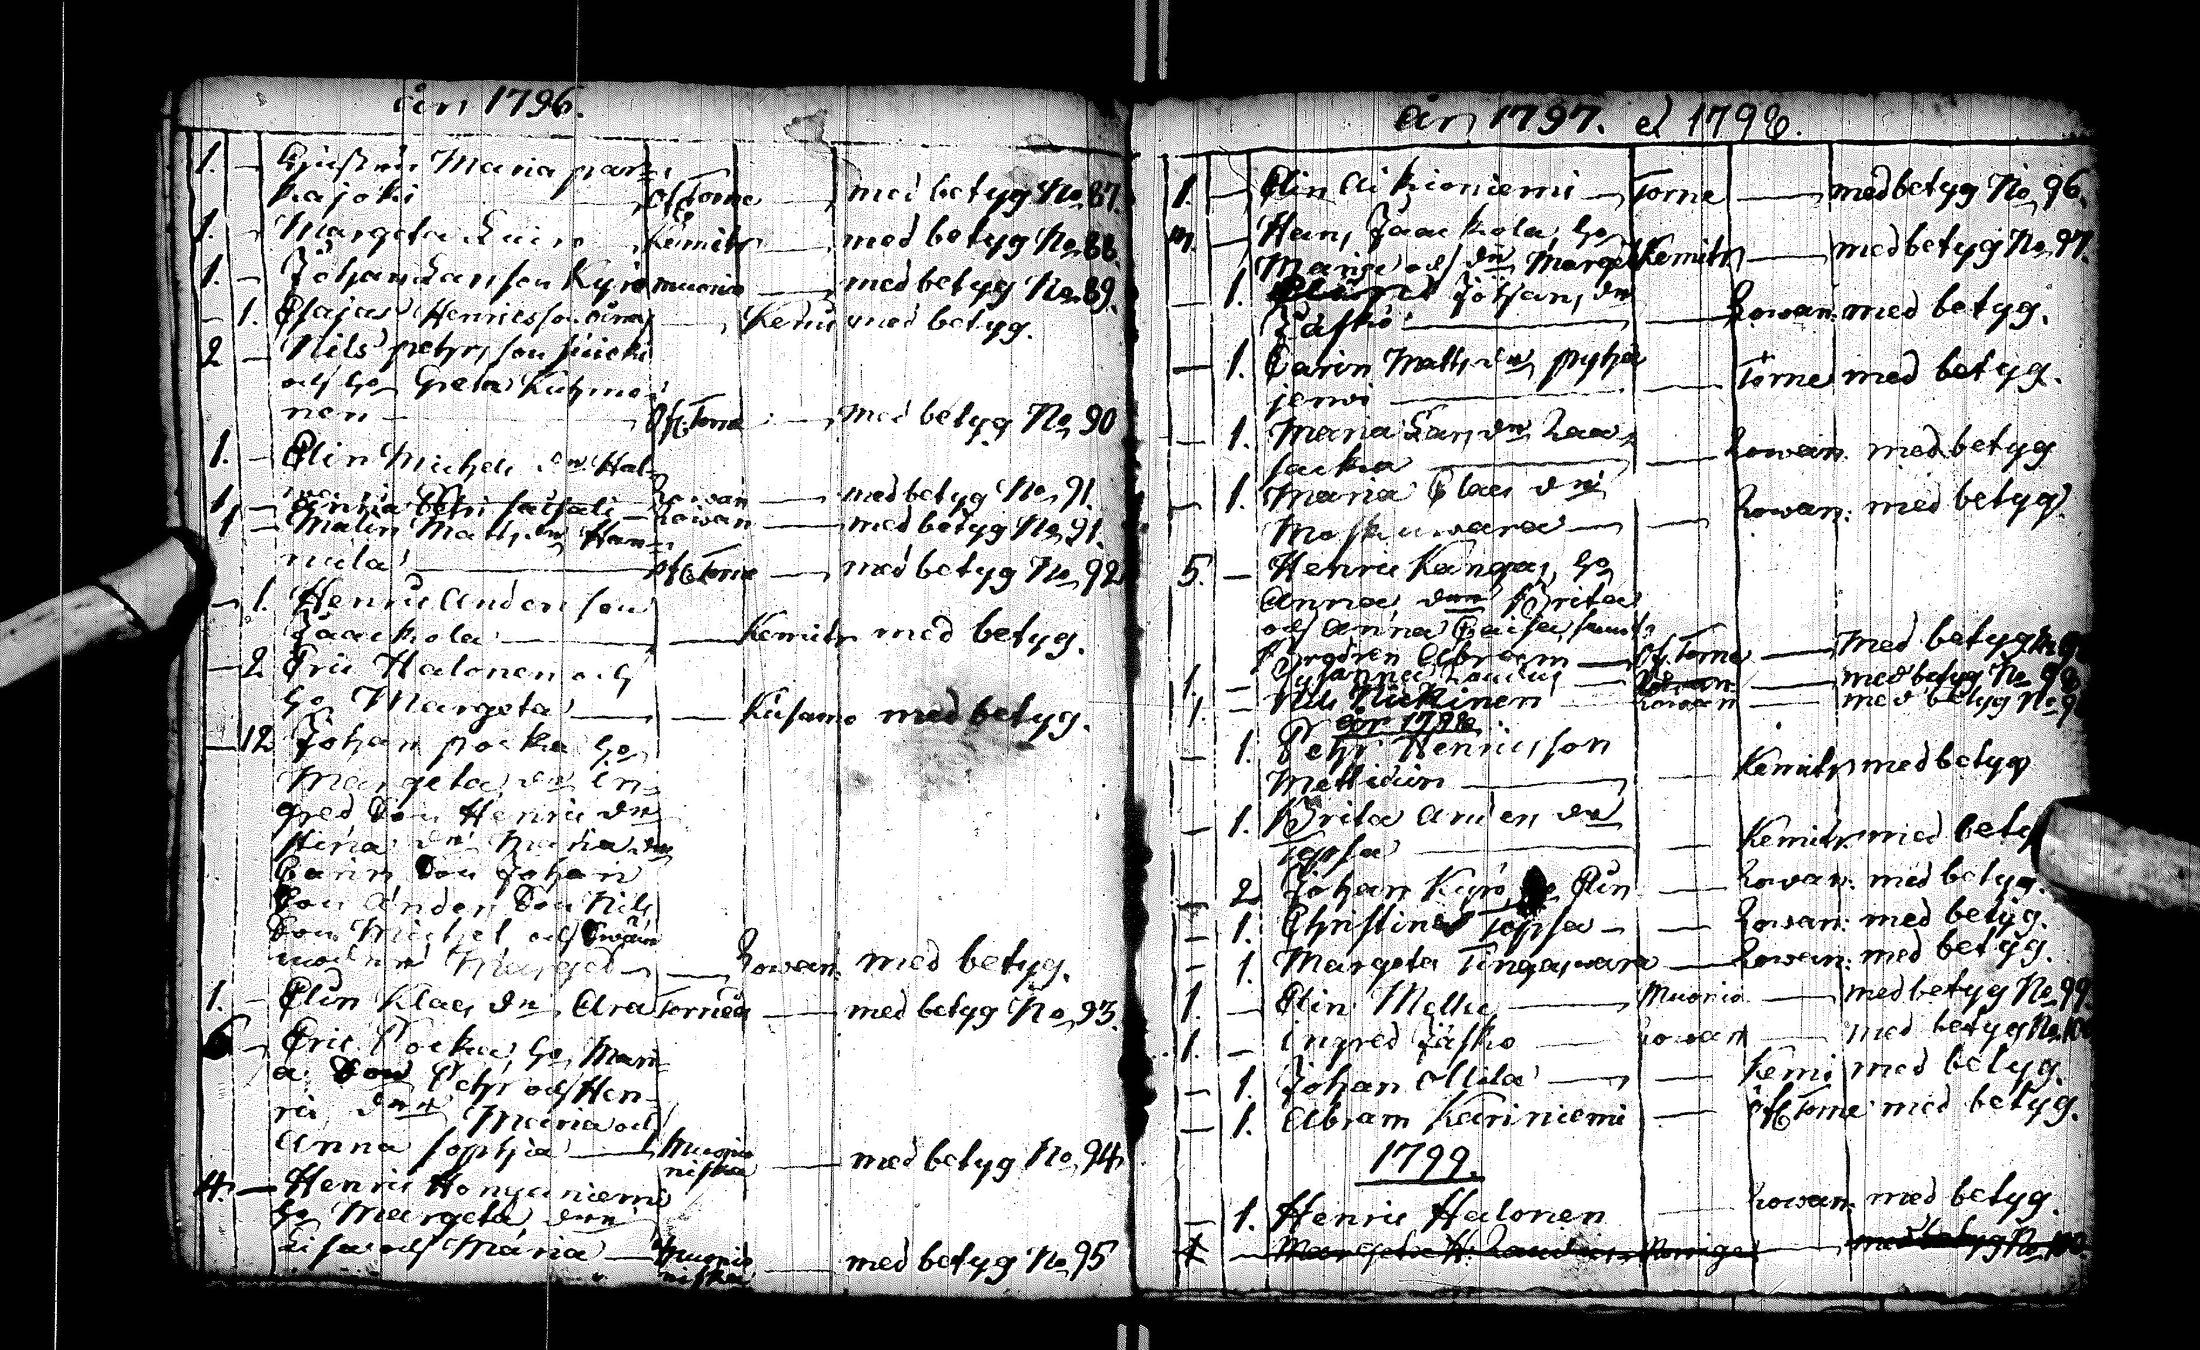 år 1796.
1. — Maria par=
kajoki öf Torne — med betyg No 87.
1. Margeta Kemitr — med betyg No 88.
1. — Johan Larsson Kyrö muonio — med betyg No 89.
— 1. Esajas Henricsson Kemi med betyg.
2 — Nils pehrsson
och ho Greta Kuhmo=
nen — öf. Torne — med betyg No 90
1. — Elin Michels dr Hal=
Rowan — med betyg No 91.
1. — Anna Rowan — med betyg No 91.
1 — Malin Maths dr Han=
nula — öf Torne — med betyg No 92
— 1. Henric Anderson
Jaackola — — Kemitr med betyg.
— 2 Eric Halonen och
ho Margeta — — Kusamo med betyg.
— 12 Johan pocka ho
Margeta dr In=
gred Son Henric dr
Stina dr Maria dr
Carin Son Johan
Son Anders Son Nils
Son Michel och Swär
modren Marget — — Rowan. med betyg.
1. — Elin Klaes dr Ara Torneå — med betyg No 93.
6 — Eric Pocka, ho Mari=
a Son Pehr och Hen=
ric drr Maria och
Anna Sophia — Muonio
niska — med betyg No 94
4. — Henric Honganiemi
ho Margeta drr
Lisa och Maria — Muonio
niska — med betyg No 95
år 1797. el 1798.
1. — Elin Aikioniemi — Torne — med betyg No 96.
— Hans Jaackola, ho
Maria och dr Marget Kemitr — med betyg No 97.
— 1. Johan, dr
Jäskö — — Rowan. med betyg.
— 1. Carin Maths dr pyhä
jerwi — — Torne med betyg.
— 1. Maria Lars dr Raa=
sacka — — Rowan. med betyg
— 1. Maria Claes dr
Moskuwara — — Rowan. med betyg.
5. — Henric Kangas, ho
Anna drr Brita
och Anna Caisa, samt
Abram — öf. Torne — med betyg
1. — Susanna — — med betyg No 98
1. — Nils Niskinen — Rowan — med betyg No
år 1798.
— 1. Pehr Henricsson
Mettidün — — Kemitr med betyg
— 1. Brita Anders dr
Topsa — — Kemitr med betyg
— 2 Johan Kyrö, ho Elin — Rowan. med betyg.
— 1. Christina Topsa — — Rowan. med betyg.
— 1. Margeta Tingawara — Rowan. med betyg.
1. — Elin Mella — Muonio — med betyg No 99
1. — Ingred Jäskö — Rowan — med betyg No 100
— 1. Johan Ollila — — Kemi med betyg.
— 1. Abram Kariniemi — öf Torne med betyg.
1799.
— 1. Henric Halonen Rowan. med betyg.